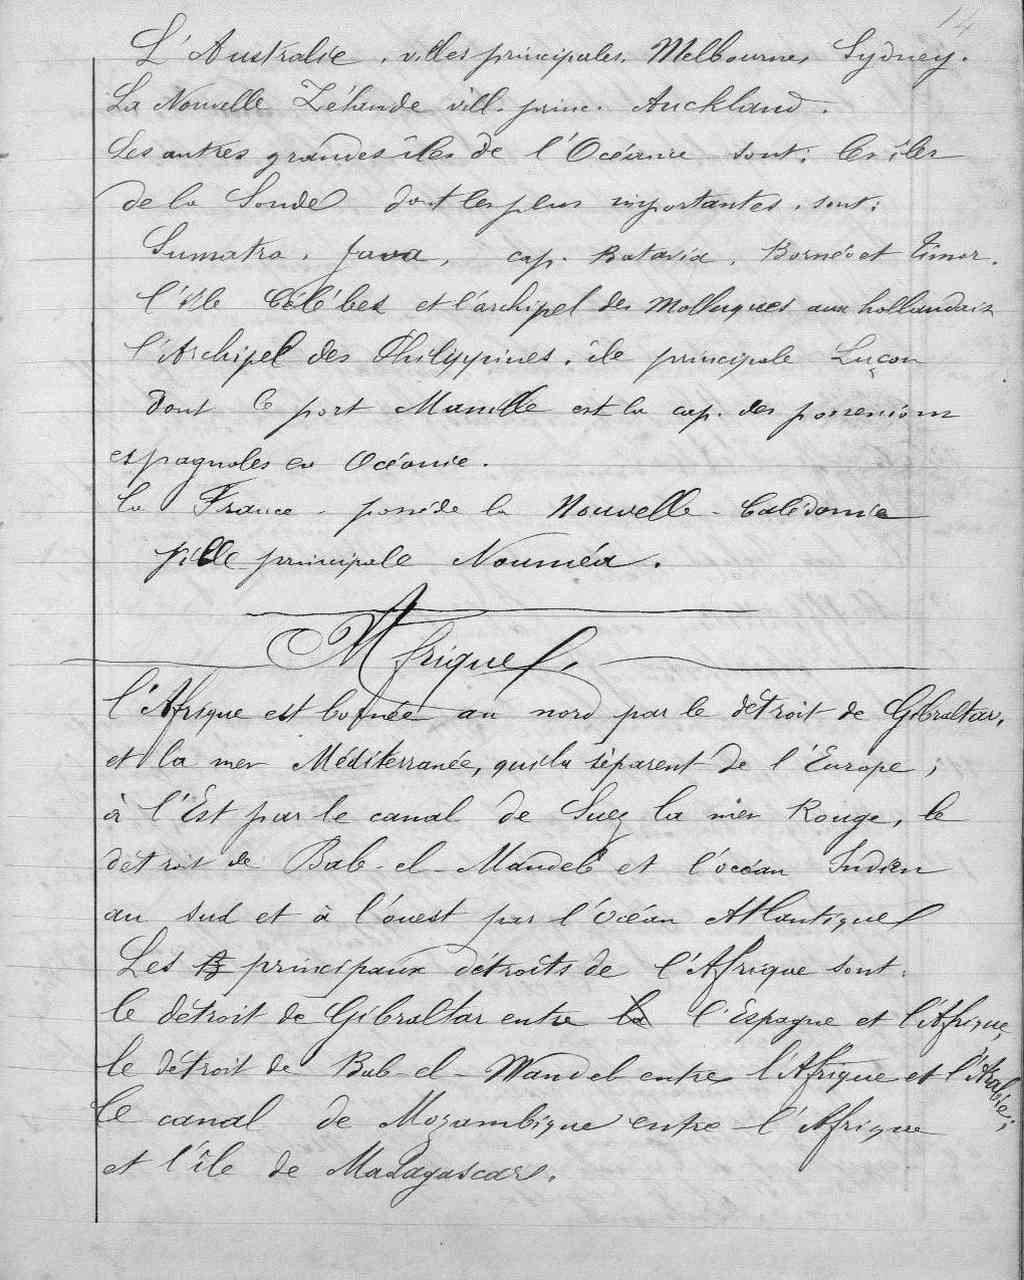 14
L'Australie, villes principales. Melbourne, Sydney.
La Nouvelle Zélande vill. princ. Auckland.
Les autres grandes îles de l'Océanie sont: les îles
de la Sonde dont les plus importantes, sont:
Sumatra, Java, cap. Batavia, Bornéo et Timor.
l'île Célèbes et l'archipel des Molluques aux hollandais
l'Archipel des Philippines, île principale Luçon
dont le port Manille est la cap. des possessions
espagnoles en Océanie.
la France possède la Nouvelle-Calédonie
ville principale Nouméa.
Afrique.
l'Afrique est bornée au nord par le détroit de Gibraltar,
et la mer Méditerranée, qui la séparent de l'Europe;
à l'Est par le canal de Suez la mer Rouge, le
détroit de Bab-el-Mandeb et l'océan Indien
au sud et à l'ouest par l'océan Atlantique
Les principaux détroits de l'Afrique sont:
le détroit de Gibraltar entre la l'Espagne et l'Afrique,
le détroit de Bab-el-Mandeb entre l'Afrique et l'Arabie;
le canal de Mozambique entre l'Afrique
et l'île de Madagascar.